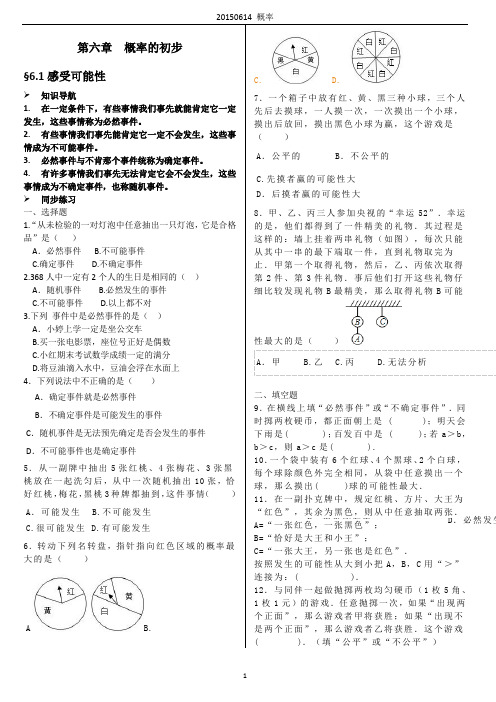 20150614 概率
第六章 概率的初步
§6.1感受可能性
➢ 知识导航
1. 在一定条件下，有些事情我们事先就能肯定它一定
发生，这些事情称为必然事件。
2. 有些事情我们事先能肯定它一定不会发生，这些事
情成为不可能事件。
3. 必然事件与不肯那个事件统称为确定事件。
4. 有许多事情我们事先无法肯定它会不会发生，这些
事情成为不确定事件，也称随机事件。
➢ 同步练习
一、选择题
1.“从未检验的一对灯泡中任意抽出一只灯泡，它是合格
品”是（ ）
A．必然事件 B.不可能事件
C.确定事件 D.不确定事件
2.368人中一定有2个人的生日是相同的（ ）
A．随机事件 B.必然发生的事件
C.不可能事件 D.以上都不对
3.下列 事件中是必然事件的是（ ）
A．小婷上学一定是坐公交车
B.买一张电影票，座位号正好是偶数
C.小红期末考试数学成绩一定的满分
D.将豆油滴入水中，豆油会浮在水面上
4．下列说法中不正确的是（ ）
A．确定事件就是必然事件
B．不确定事件是可能发生的事件
C．随机事件是无法预先确定是否会发生的事件
D．不可能事件也是确定事件
5．从一副牌中抽出5张红桃、4张梅花、3张黑
桃放在一起洗匀后，从中一次随机抽出10张，恰
好红桃,梅花,黑桃3种牌都抽到,这件事情（ ）
A．可能发生 B.不可能发生
C.很可能发生 D.有可能发生
6．转动下列名转盘，指针指向红色区域的概率最
大的是（ ）
红
黄
A
红
黄
白
B．
红
黑
黄
白
C．
白
红
红
白
白
红
红
白
D．
7．一个箱子中放有红、黄、黑三种小球，三个人
先后去摸球，一人摸一次，一次摸出一个小球，
摸出后放回，摸出黑色小球为赢，这个游戏是
（ ）
A．公平的 B．不公平的
C.先摸者赢的可能性大
D．后摸者赢的可能性大
8．甲、乙、丙三人参加央视的“幸运52”．幸运
的是，他们都得到了一件精美的礼物．其过程是
这样的：墙上挂着两串礼物（如图），每次只能
从其中一串的最下端取一件，直到礼物取完为
止．甲第一个取得礼物，然后，乙、丙依次取得
第2件、第3件礼物．事后他们打开这些礼物仔
细比较发现礼物B最精美，那么取得礼物B可能
B
C
A
性最大的是（ ）
A．甲 B.乙 C.丙 D.无法分析
二、填空题
9．在横线上填“必然事件”或“不确定事件”．同
时掷两枚硬币，都正面朝上是（ ）；明天会
下雨是( )；百发百中是（ ）；若a＞b，
b＞c，则a＞c是( )．
10．一个袋中装有6个红球、4个黑球、2个白球，
每个球除颜色外完全相同，从袋中任意摸出一个
球，那么摸出( )球的可能性最大．
11．在一副扑克牌中，规定红桃、方片、大王为
“红色”，其余为黑色，则从中任意抽取两张．
D．必然发生
A=“一张红色，一张黑色”；
B=“恰好是大王和小王”；
C=“一张大王，另一张也是红色”．
按照发生的可能性从大到小把A，B，C用“＞”
连接为：( )．
12．与同伴一起做抛掷两枚均匀硬币（1枚5角、
1枚1元）的游戏．任意抛掷一次，如果“出现两
个正面”，那么游戏者甲将获胜；如果“出现不
是两个正面”，那么游戏者乙将获胜．这个游戏
( )．（填“公平”或“不公平”）
1